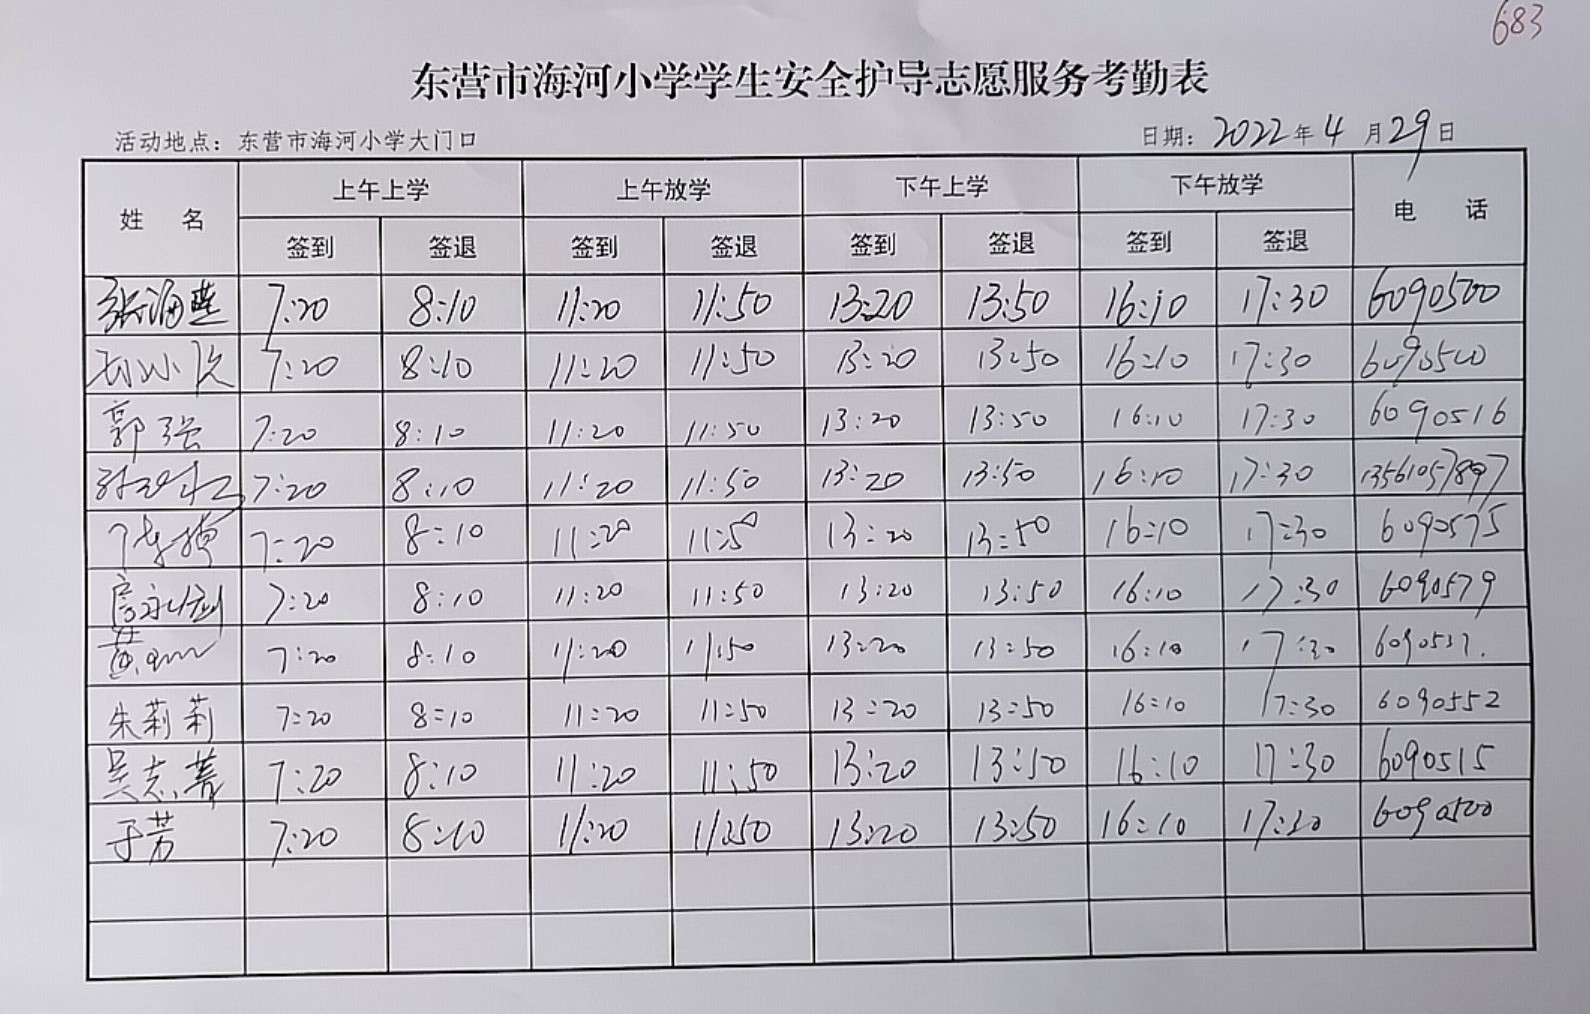 683
东营市海河小学学生安全护导志愿服务考勤表
活动地点：东营市海河小学大门口 日期：2022年4月29日
姓 名 上午上学 上午放学 下午上学 下午放学 电 话
签到 签退 签到 签退 签到 签退 签到 签退
张海燕 7:20 8:10 11:20 11:50 13:20 13:50 16:10 17:30 6090500
7:20 8:10 11:20 11:50 13:20 13:50 16:10 17:30 6090500
郭强 7:20 8:10 11:20 11:50 13:20 13:50 16:10 17:30 6090516
7:20 8:10 11:20 11:50 13:20 13:50 16:10 17:30 13561057897
7:20 8:10 11:20 11:50 13:20 13:50 16:10 17:30 6090575
7:20 8:10 11:20 11:50 13:20 13:50 16:10 17:30 6090579
7:20 8:10 11:20 11:50 13:20 13:50 16:10 17:30
朱莉莉 7:20 8:10 11:20 11:50 13:20 13:50 16:10 17:30 6090552
吴志菁 7:20 8:10 11:20 11:50 13:20 13:50 16:10 17:30 6090515
于芳 7:20 8:10 11:20 11:50 13:20 13:50 16:10 17:30 6090500